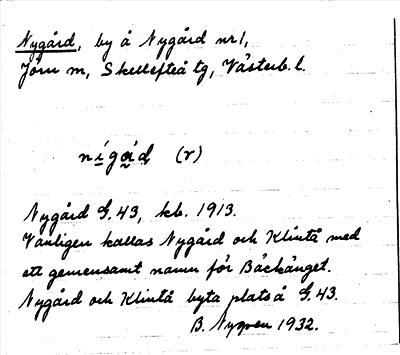 Nygård, by å Nygård nr 1,
Jörn sn, Skellefteå tg, Västerb. l.
nígạ́ḍ (r)
Nygård G. 43, kb. 1913.
Vanligen kallas Nygård och Klintå med
ett gemensamt namn för Bäckänget.
Nygård och Klintå byta plats å G. 43.
B. Nygren 1932.